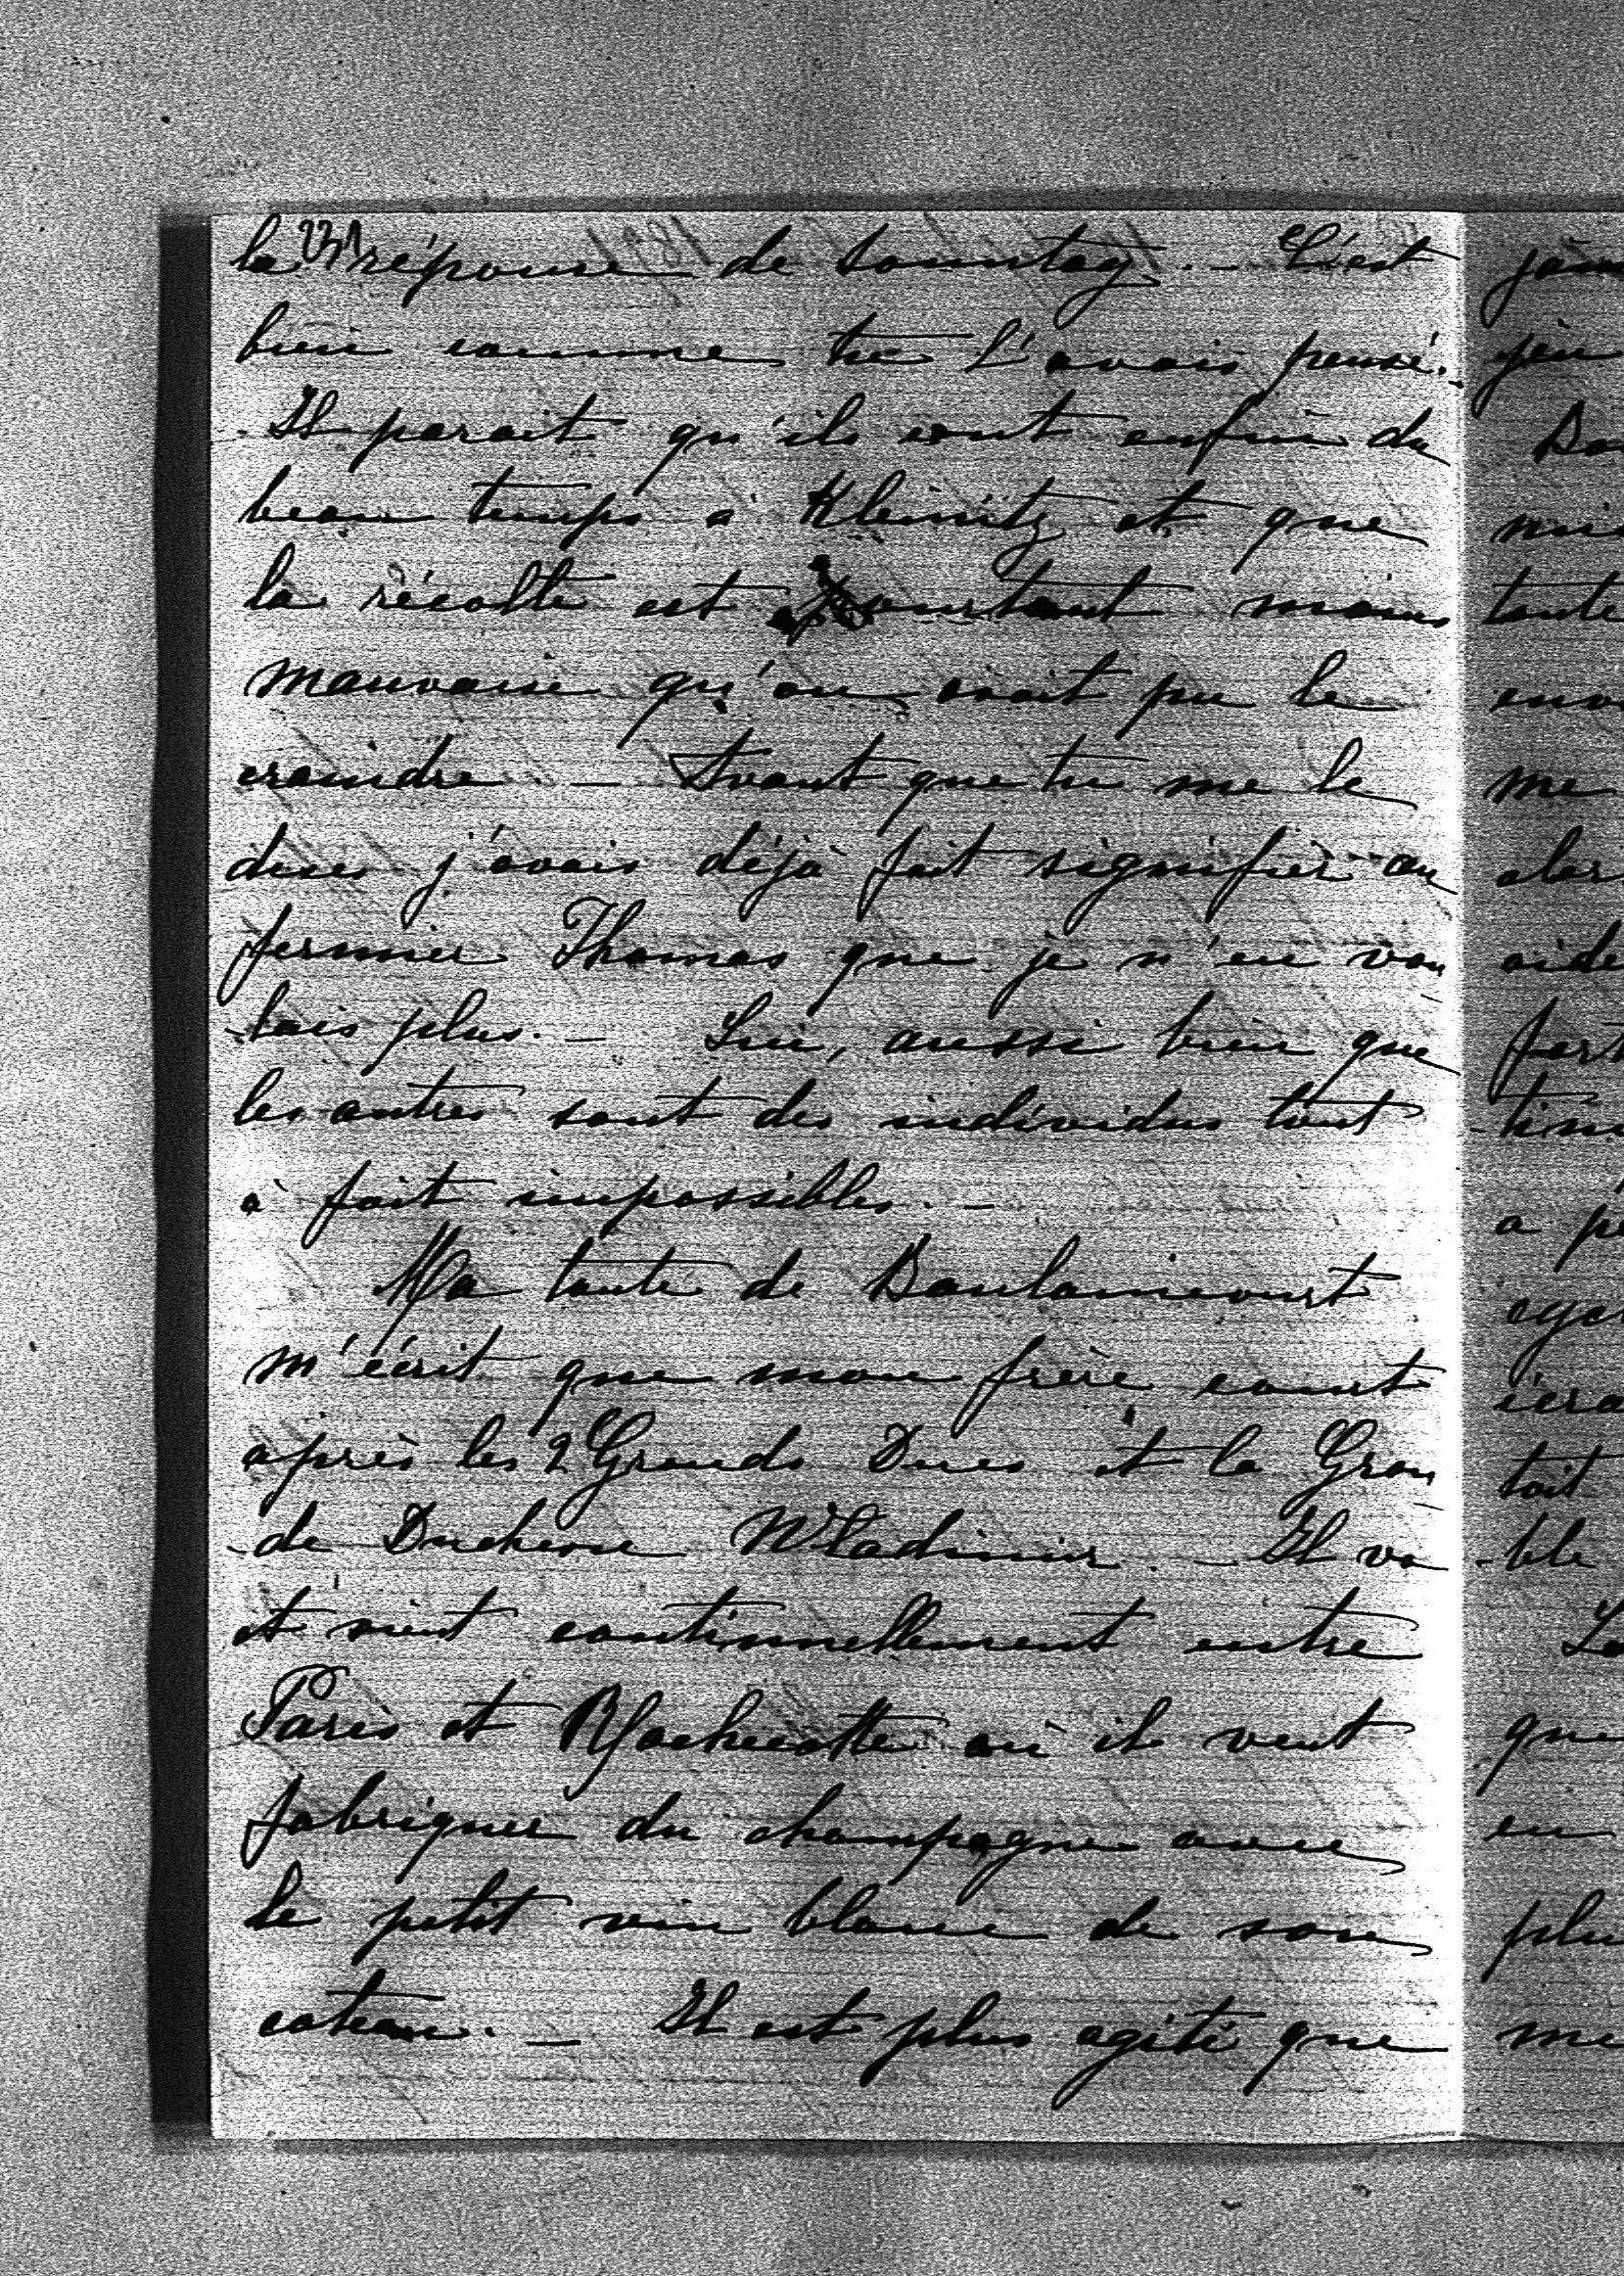 231
la réponse de Sonntag. — C'est
bien comme tu l'avais pensé.
Il parait qu'ils ont enfin du
beau temps à Kleinitz et que
la récolte est pourtant moins
mauvaise qu'on avait pu le
craindre. — Avant que tu me le
dises j'avais déjà fait signifier au
fermier Thomas que je n'en vou
-lais plus. — Lui, aussi bien que
les autres sont des individus tout
à fait impossibles. —
Ma tante de Doulaincourt
m'écrit que mon frère court
après les 2 Grands Ducs et la Gran
-de Duchesse Wladimir. — Il va
et vient continuellement entre
Paris et Rochecotte où il veut
fabriquer du champagne avec
le petit vin blanc de son
coteau. — Il est plus agité que